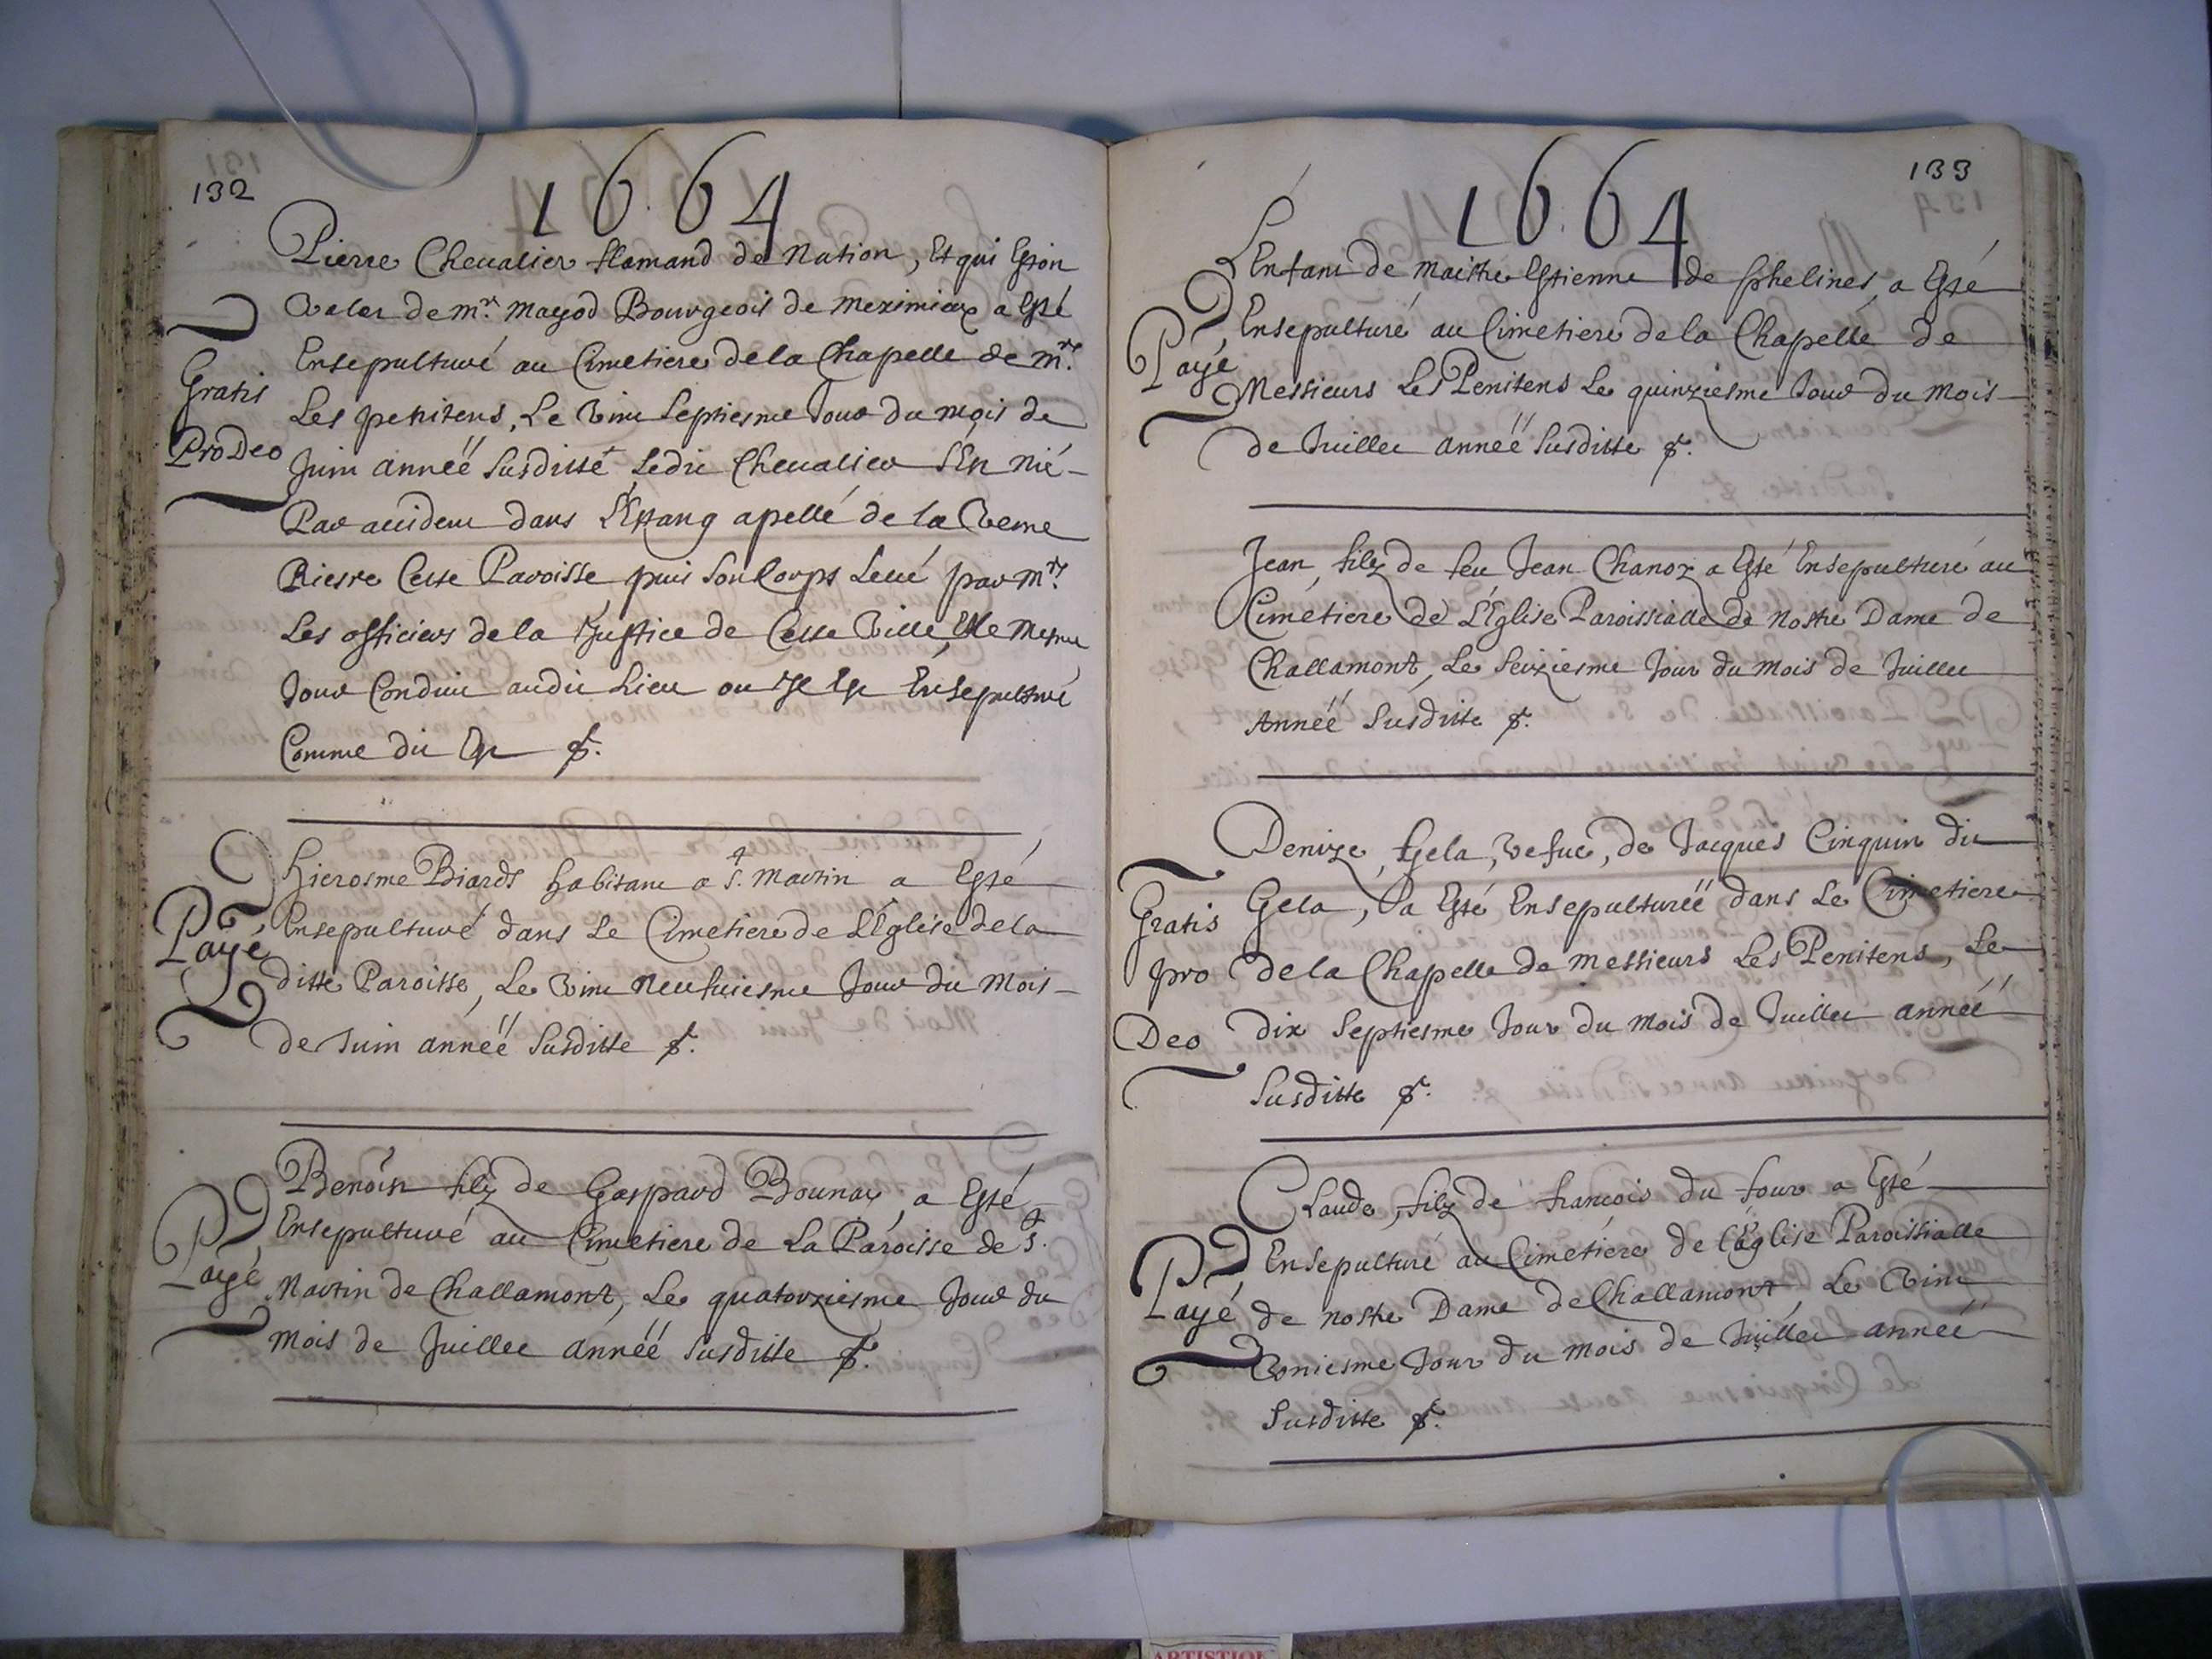 132
1664
Pierre Chevalier flamand de Nation, Et qui Estoit
Valet de Mr. Mayod Bourgeois de Meximieux a Esté
Ensepulturé au Cimetiere de la Chapelle de Mrs.
Les penitens, Le Vint Septiesme Jour du mois de
Juin annéé Susditte Ledit Chevalier S'Est nié
Par accident dans L'Estang apellé de la Verne
Riesre Cette Paroisse, puis Son Corps Levé par Mrs.
Les officiers de la Justice de Cette Ville, Et le Mesme
Jour Conduit audit Lieu ou Il Est Ensepulturé
Comme dit Est
Gratis
Pro Deo
Hierosme Biards habitant a St. Martin a Esté
Ensepulturé dans Le Cimetiere de L'Eglise de la
ditte Paroisse, Le Vint Neufviesme Jour du Mois
de Juin annéé Susditte
Payé
Benoist filz de Gaspard Bounay, a Esté
Ensepulturé au Cimetiere de La Paroisse de St.
Martin de Challamont, Le quatorziesme Jour du
Mois de Juillet annéé Susditte
Payé
133
1664
L'Enfant de Maistre Estienne de Sphelines, a Esté
Ensepulturé au Cimetiere de la Chapelle de
Messieurs Les Penitens Le quinziesme Jour du Mois
de Juillet annéé Susditte
Payé
Jean, filz de feu Jean Chanoz a Esté Ensepulturé au
Cimetiere de L'Eglise Paroissialle de Nostre Dame de
Challamont, Le Seiziesme Jour du Mois de Juillet
Annéé Susditte
Denize, Gela, Vefue, de Jacques Cinquin dit
Gela, a Esté Ensepulturéé dans Le Cimetiere
de la Chapelle de Messieurs Les Penitens, Le
dix Septiesme Jour du Mois de Juillet annéé
Susditte
Gratis
pro
Deo
Claude, filz de francois du four a Esté
Ensepulturé au Cimetiere de l'Eglise Paroissialle
de Nostre Dame de Challamont Le Vint
Vniesme Jour du Mois de Juillet annéé
Susditte
Payé